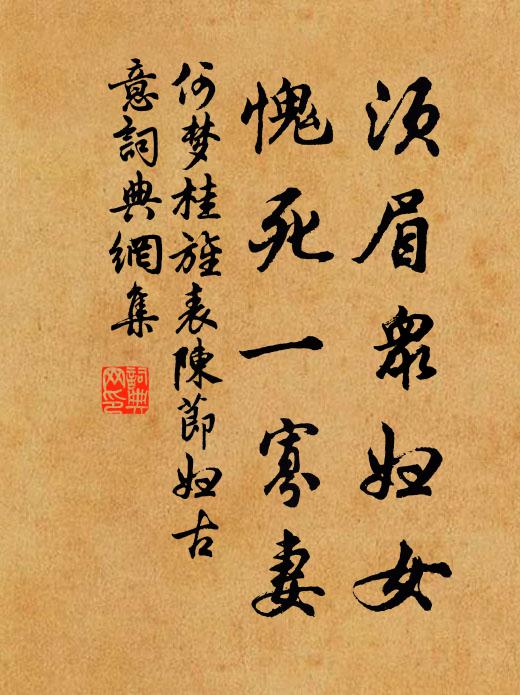 須眉眾婦女
愧死一寡妻
何梦桂旌表陳節婦古
意詞典網集
詞典网印